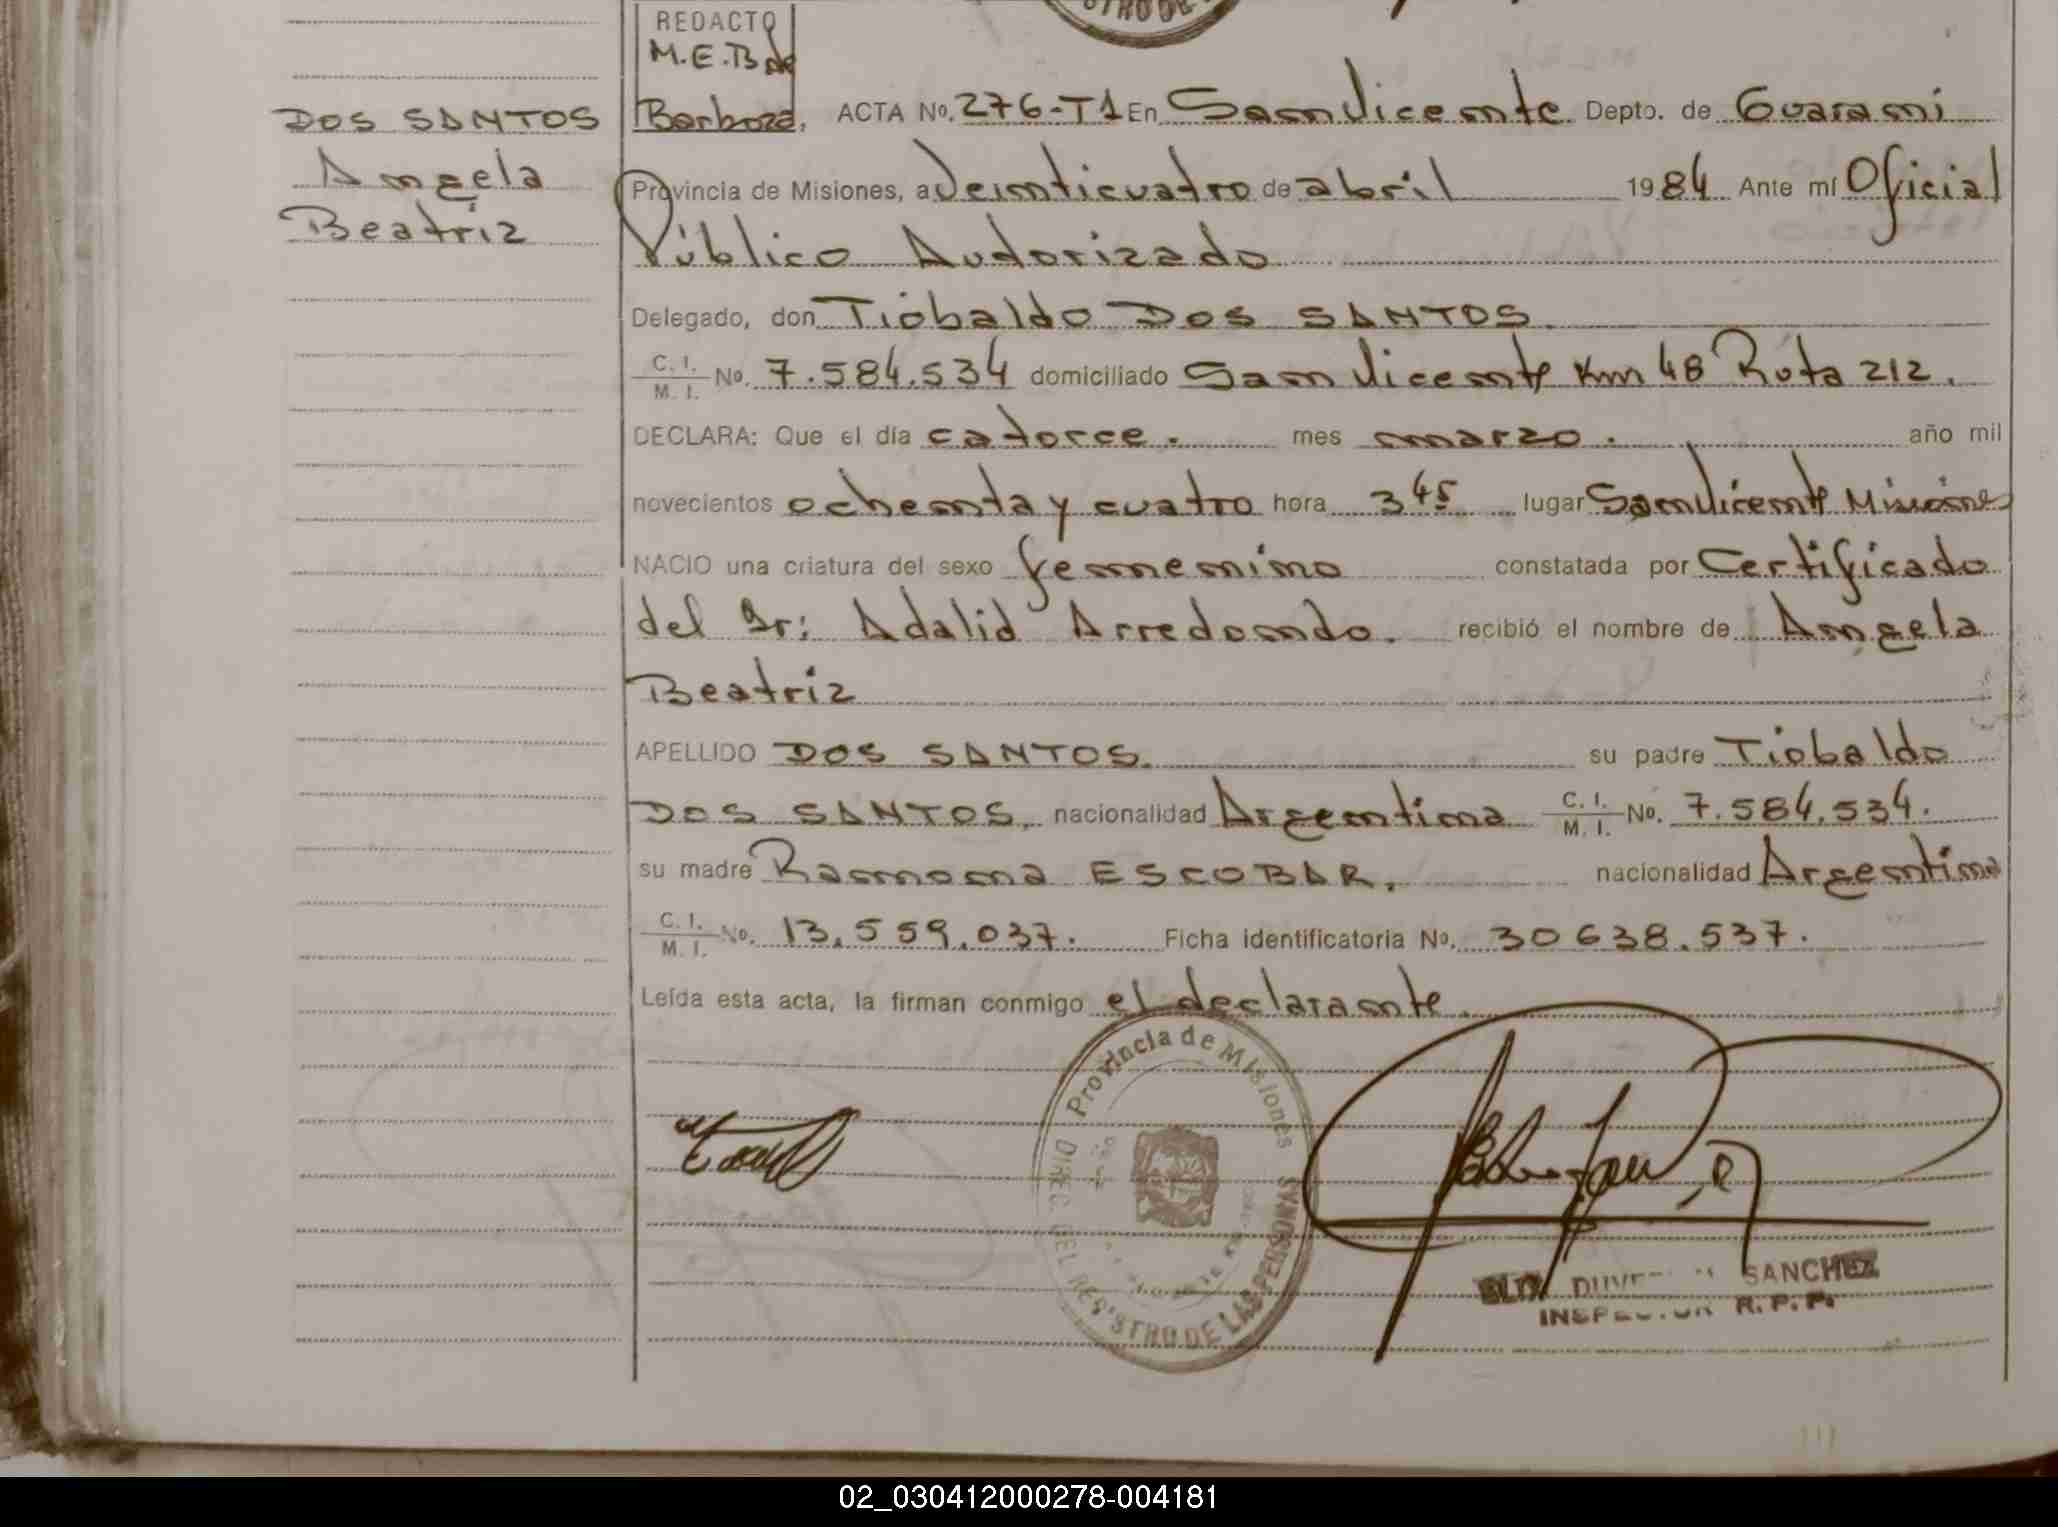 STRO DE
REDACTO
M.E.B de
DOS SANTOS Barboza, ACTA No. 276-T1 En San Vicente Depto. de Guarani
Angela
Provincia de Misiones, a Veinticuatro de abril 1984 Ante mí Oficial
Beatriz
Público Autorizado
Delegado, don Tiobaldo DOS SANTOS.
C. I. / M. I. No. 7.584.534 domiciliado San Vicente Km 48 Ruta 212.
DECLARA: Que el día catorce. mes marzo. año mil
novecientos ochenta y cuatro hora 3 45 lugar San Vicente Misiones
NACIO una criatura del sexo femenino constatada por Certificado
del Dr: Adalid Arredondo. recibió el nombre de Angela
Beatriz
APELLIDO DOS SANTOS. su padre Tiobaldo
DOS SANTOS, nacionalidad Argentina C. I. / M. I. No. 7.584.534.
su madre Ramona ESCOBAR. nacionalidad Argentina
C. I. / M. I. No. 13.559.037. Ficha identificatoria No. 30638.537.
Leída esta acta, la firman conmigo el declarante.
Provincia de Misiones
DIREC. DEL REGISTRO DE LAS PERSONAS
SANCHEZ
INSPECTOR R. P. P.
02_030412000278-004181